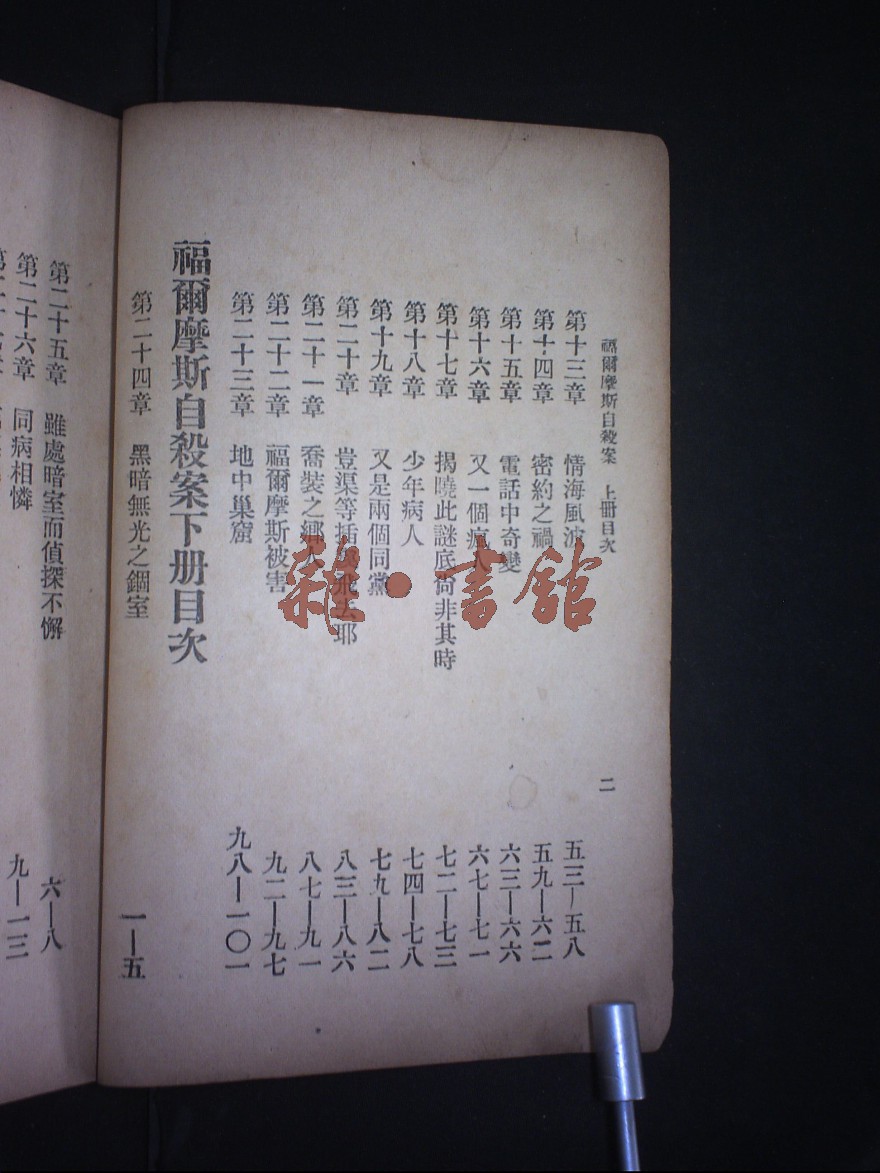 福爾摩斯自殺案 上册目次 二
第十三章 情海風波 五三—五八
第十四章 密約之禍 五九—六二
第十五章 電話中奇變 六三—六六
第十六章 又一個瘋人 六七—七一
第十七章 揭曉此謎底尙非其時 七二—七三
第十八章 少年病人 七四—七八
第十九章 又是兩個同黨 七九—八二
第二十章 豈渠等插翅飛去耶 八三—八六
第二十一章 喬裝之鄉人 八七—九一
第二十二章 福爾摩斯被害 九二—九七
第二十三章 地中巢窟 九八—一〇一
福爾摩斯自殺案下册目次
第二十四章 黑暗無光之錮室 一—五
第二十五章 雖處暗室而偵探不懈 六—八
第二十六章 同病相憐 九—一三
雜·書館